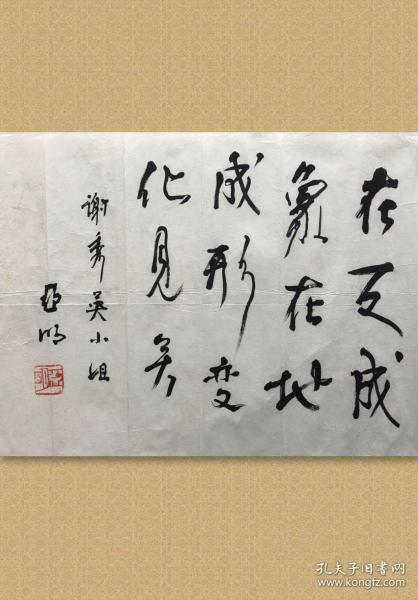 在天成
象在地
成形变
化见矣
谢秀英小姐
亚明
孔夫子旧书网
www.kongfz.com